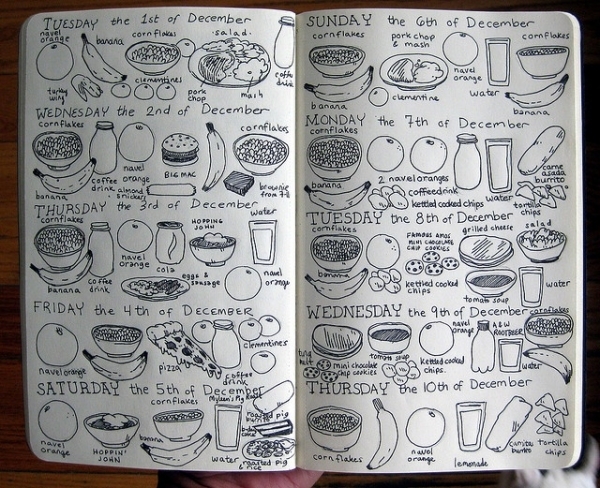 TUESDAY the 1st of December
navel orange
banana
cornflakes
salad
coffee drink
turkey wing
clementines
pork chop
mash
WEDNESDAY the 2nd of December
cornflakes
banana
coffee drink
navel orange
almond snickers
BIG MAC
cornflakes
brownie from 7-11
THURSDAY the 3rd of December
cornflakes
banana
coffee drink
navel orange
cola
HOPPING JOHN
eggs & sausage
water
navel orange
FRIDAY the 4th of December
navel orange
cornflakes
banana
pizza
coffee drink
clementines
SATURDAY the 5th of December
navel orange
HOPPIN' JOHN
cornflakes
banana
water
roasted pig burrito
roasted pig & rice
SUNDAY the 6th of December
cornflakes
banana
pork chop & mash
clementine
navel orange
water
cornflakes
banana
MONDAY the 7th of December
cornflakes
banana
2 navel oranges
coffee drink
kettled cooked chips
water
carne asada burrito
tortilla chips
TUESDAY the 8th of December
cornflakes
banana
FAMOUS AMOS MINI CHOCOLATE CHIP COOKIES
kettled cooked chips
grilled cheese
tomato soup
salad
water
WEDNESDAY the 9th of December
tuna melt
mini chocolate chip cookies
tomato soup
kettled cooked chips.
navel orange
A&W ROOTBEER
water
cornflakes
THURSDAY the 10th of December
cornflakes
navel orange
lemonade
carnitas burrito
tortilla chips